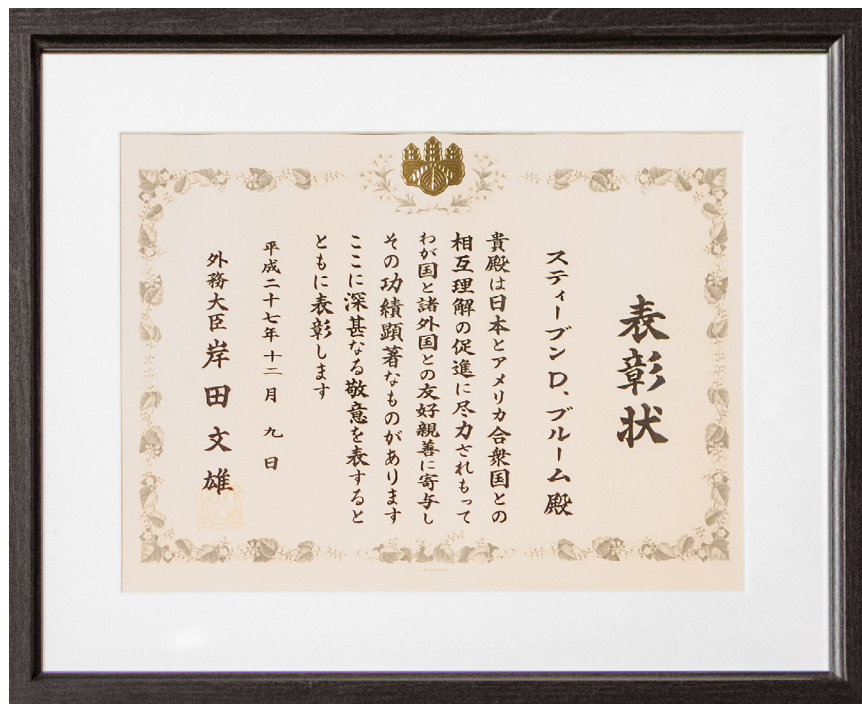 表彰状
スティーブン D、ブルーム 殿
貴殿は日本とアメリカ合衆国との
相互理解の促進に尽力されもって
わが国と諸外国との友好親善に寄与し
その功績顕著なものがあります
ここに深甚なる敬意を表すると
ともに表彰します
平成二十七年十二月 九 日
外務大臣 岸田文雄